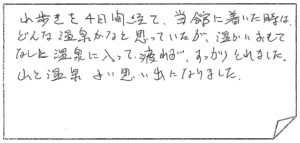 山歩きを4日間経て、当館に着いた時は、
どんな温泉かなと思っていたが、温かいおもて
なしと温泉に入って疲れが、すっかりとれました。
山と温泉 よい思い出になりました。